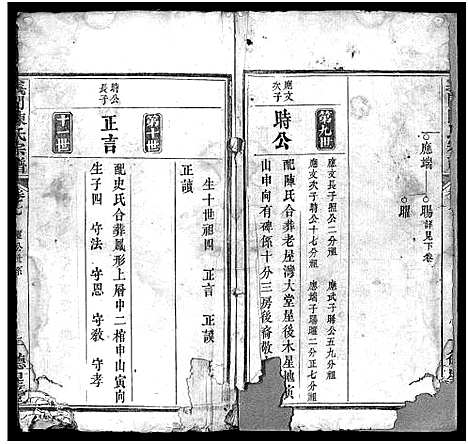 應端
暘 詳見下卷
曜
第九世
應文長子照公二分祖
應武子暘公五九分祖
應文次子時公十七分祖
應端子暘曜二分正七分祖
應文次子
時公
配陳氏合葬老屋灣大堂屋後木星地寅
山申向有碑係十分三房後裔敬
生十世祖四 正言 正謨
正讀
第十世
時公長子
正言
配史氏合葬鳳形上層中二棺申山寅向
生子四 守法 守恩 守教 守孝
十一世
義門陳氏宗譜
卷七